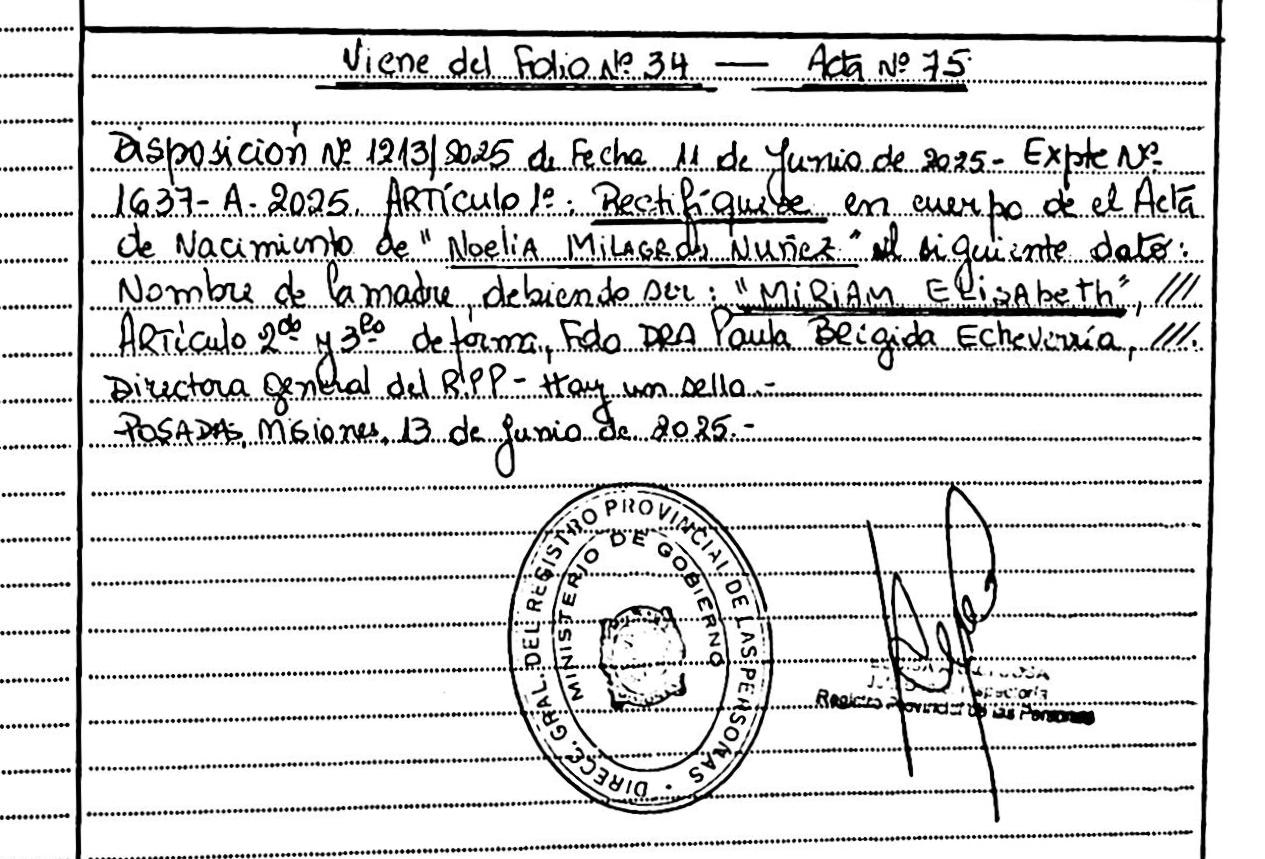 Viene del Folio Nº 34 — Acta Nº 75
Disposición Nº 1213/2025 de Fecha 11 de Junio de 2025- Expte Nº
1637- A - 2025. ARTÍCULO 1º: Rectifíquise en cuerpo de el Acta
de Nacimiento de "Noelia Milagros Nuñez" el siguiente dato:
Nombre de la madre, debiendo ser: "MIRIAM ELISABETH", ///
ARTÍCULO 2do y 3ro de forma, Fdo DRA Paula Brigida Echeverría, ///.
Directora General del R.P.P - Hay un sello.-
POSADAS, Misiones, 13 de Junio de 2025.-
DIRECC. GRAL. DEL REGISTRO PROVINCIAL DE LAS PERSONAS
MINISTERIO DE GOBIERNO
Registro Provincial de las Personas